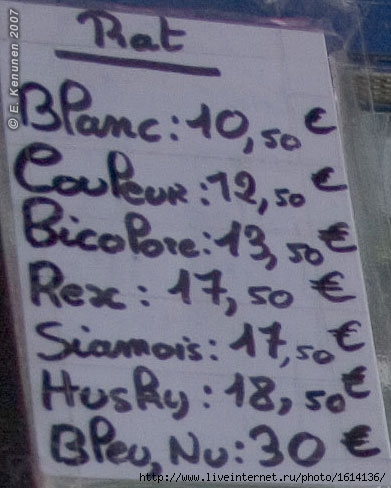 Rat
Blanc: 10,50 €
Couleur: 12,50 €
Bicolore: 13,50 €
Rex: 17,50 €
Siamois: 17,50 €
Husky: 18,50 €
Bleu, Nu: 30 €
© E. Kenunen 2007
http://www.liveinternet.ru/photo/1614136/